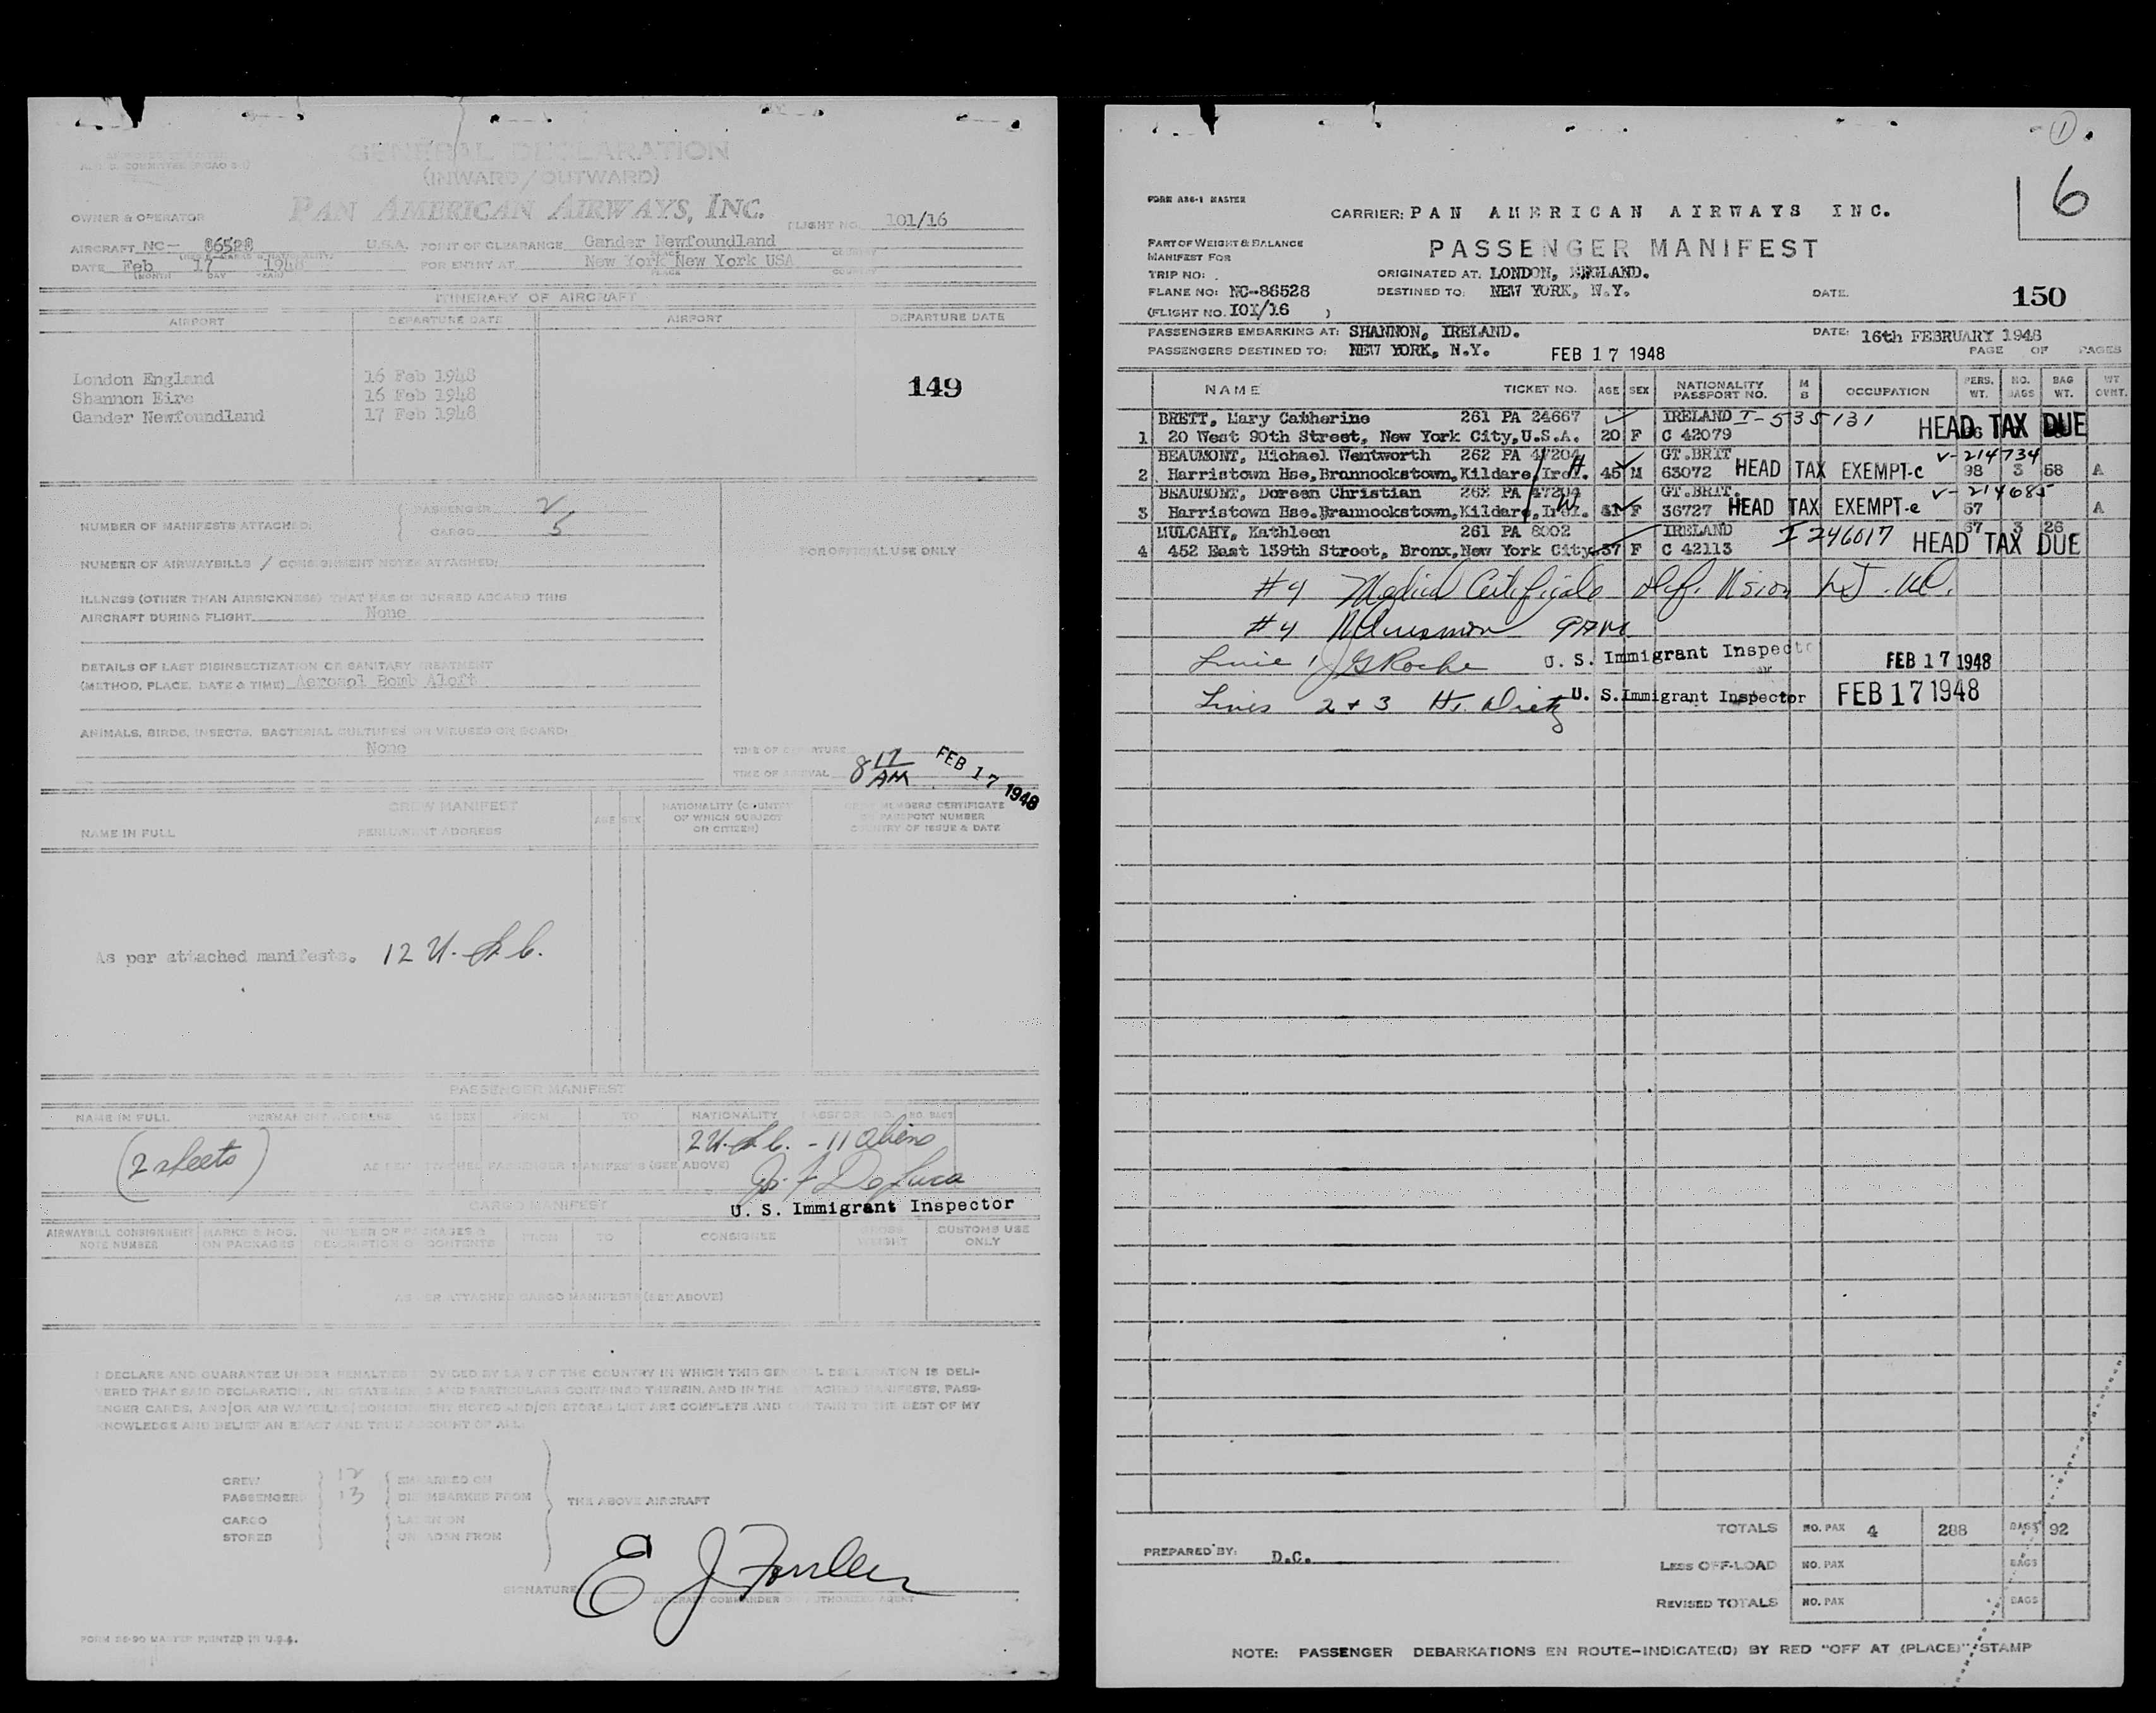 GENERAL DECLARATION
(INWARD/OUTWARD)
OWNER & OPERATOR PAN AMERICAN AIRWAYS, INC. FLIGHT NO. 101/16
AIRCRAFT NC- 86528 U.S.A. POINT OF CLEARANCE Gander Newfoundland
DATE Feb 17 1948 FOR ENTRY AT New York New York USA
(MONTH DAY YEAR) PLACE COUNTRY
ITINERARY OF AIRCRAFT
AIRPORT DEPARTURE DATE AIRPORT DEPARTURE DATE
London England 16 Feb 1948
Shannon Eire 16 Feb 1948
Gander Newfoundland 17 Feb 1948
149
NUMBER OF MANIFESTS ATTACHED: PASSENGER 2
CARGO 5
FOR OFFICIAL USE ONLY
NUMBER OF AIRWAYBILLS / CONSIGNMENT NOTES ATTACHED:
ILLNESS (OTHER THAN AIRSICKNESS) THAT HAS OCCURRED ABOARD THIS
AIRCRAFT DURING FLIGHT None
DETAILS OF LAST DISINSECTIZATION OR SANITARY TREATMENT
(METHOD, PLACE, DATE & TIME) Aerosol Bomb Aloft
ANIMALS, BIRDS, INSECTS, BACTERIAL CULTURES OR VIRUSES ON BOARD:
None
TIME OF DEPARTURE
TIME OF ARRIVAL 8 17 AM FEB 17 1948
CREW MANIFEST
NAME IN FULL PERMANENT ADDRESS AGE SEX NATIONALITY (COUNTRY OF WHICH SUBJECT OR CITIZEN) CREW MEMBERS CERTIFICATE OR PASSPORT NUMBER COUNTRY OF ISSUE & DATE
As per attached manifests. 12 U.S.C.
PASSENGER MANIFEST
NAME IN FULL PERMANENT ADDRESS AGE SEX FROM TO NATIONALITY PASSPORT NO. NO. BAGS
2 U.S.C. - 11 Aliens
(2 sheets) AS PER ATTACHED PASSENGER MANIFESTS (SEE ABOVE)
Jos. F DeLuca
U. S. Immigrant Inspector
CARGO MANIFEST
AIRWAYBILL CONSIGNMENT NOTE NUMBER MARKS & NOS. ON PACKAGES NUMBER OF PACKAGES & DESCRIPTION OF CONTENTS FROM TO CONSIGNEE GROSS WEIGHT CUSTOMS USE ONLY
AS PER ATTACHED CARGO MANIFESTS (SEE ABOVE)
I DECLARE AND GUARANTEE UNDER PENALTIES PROVIDED BY LAW OF THE COUNTRY IN WHICH THIS GENERAL DECLARATION IS DELI-
VERED THAT SAID DECLARATION, AND STATEMENTS AND PARTICULARS CONTAINED THEREIN, AND IN THE ATTACHED MANIFESTS, PASS-
ENGER CARDS, AND/OR AIR WAYBILLS/CONSIGNMENT NOTES AND/OR STORES LIST ARE COMPLETE AND CONTAIN TO THE BEST OF MY
KNOWLEDGE AND BELIEF AN EXACT AND TRUE ACCOUNT OF ALL:
CREW 12 EMBARKED ON
PASSENGERS 13 DISEMBARKED FROM THE ABOVE AIRCRAFT
CARGO LADEN ON
STORES UNLADEN FROM
SIGNATURE E J Fowler
AIRCRAFT COMMANDER OR AUTHORIZED AGENT
1
6
FORM A86-1 MASTER
CARRIER: PAN AMERICAN AIRWAYS INC.
PART OF WEIGHT & BALANCE
MANIFEST FOR
PASSENGER MANIFEST
TRIP NO: ORIGINATED AT: LONDON, ENGLAND.
PLANE NO: NC-86528 DESTINED TO: NEW YORK, N.Y. DATE. 150
(FLIGHT NO. 101/16 )
PASSENGERS EMBARKING AT: SHANNON, IRELAND. DATE: 16th FEBRUARY 1948
PASSENGERS DESTINED TO: NEW YORK, N.Y. FEB 17 1948 PAGE OF PAGES
NAME TICKET NO. AGE SEX NATIONALITY PASSPORT NO. M B OCCUPATION PERS. WT. NO. BAGS BAG WT. WT OVMT.
BRETT, Mary Catherine 261 PA 24667 IRELAND I-535131
1 20 West 90th Street, New York City, U.S.A. 20 F C 42079 HEAD TAX DUE
BEAUMONT, Michael Wentworth 262 PA 47204 GT.BRIT V-214734
2 Harristown Hse, Brannockstown, Kildare, Irel. 45 M 63072 HEAD TAX EXEMPT-c 98 3 58 A
BEAUMONT, Doreen Christian 262 PA 47204 GT.BRIT. V-214685
3 Harristown Hse. Brannockstown, Kildare, Irel. 31 F 36727 HEAD TAX EXEMPT-e 57 A
MULCAHY, Kathleen 261 PA 8002 IRELAND I 246017 67 3 26
4 452 East 139th Street, Bronx, New York City 37 F C 42113 HEAD TAX DUE
#4 Medical Certificate Def. Vision
#4
Line 1 J G Roche U. S. Immigrant Inspector FEB 17 1948
Lines 2 + 3 H. Dietz U. S. Immigrant Inspector FEB 17 1948
TOTALS NO. PAX 4 288 BAGS 92
PREPARED BY: D.C.
LESS OFF-LOAD NO. PAX BAGS
REVISED TOTALS NO. PAX BAGS
NOTE: PASSENGER DEBARKATIONS EN ROUTE-INDICATE(D) BY RED "OFF AT (PLACE)" STAMP